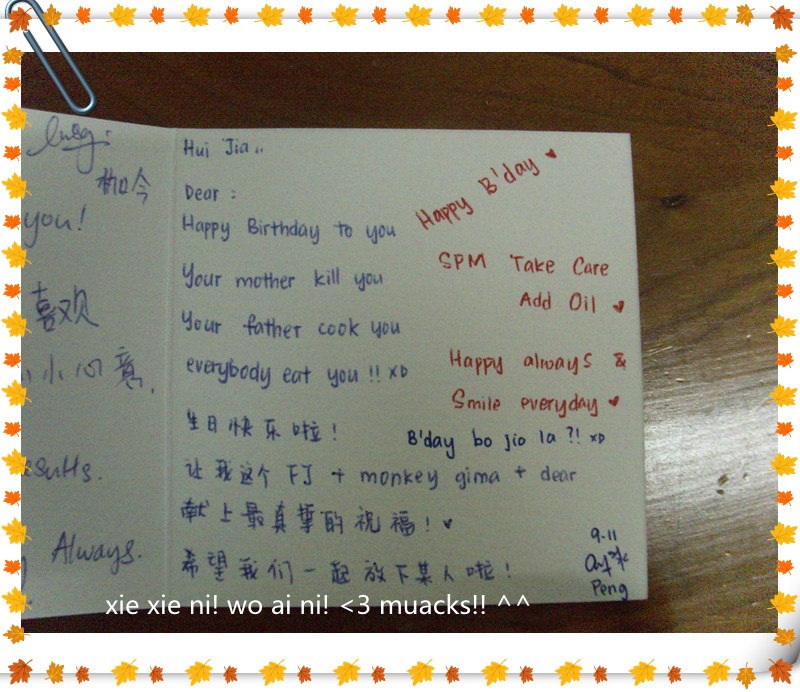 枷今
you!
喜欢
小小心意.
ssults.
Always.
Hui Jia..
Dear :
Happy Birthday to you
Your mother kill you
Your father cook you
everybody eat you !! xD
生日快乐啦!
让我这个 FJ + monkey gima + dear
献上最真挚的祝福! ♥
希望我们一起放下某人啦!
Happy B'day ♥
SPM Take Care
Add Oil ♥
Happy always &
Smile everyday ♥
B'day bo jio la ?! xD
9-11
Peng
xie xie ni! wo ai ni! <3 muacks!! ^^